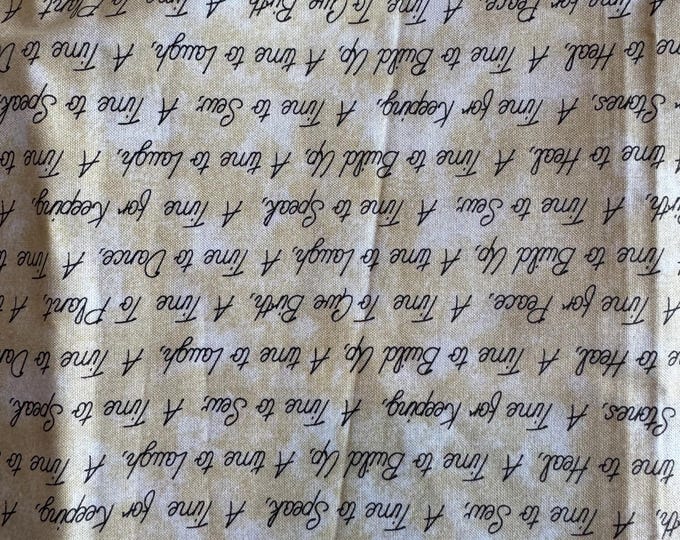 A Time to Sew, A Time to Speak, A Time for Keeping, A
time to Heal, A Time to Build Up, A time to Laugh, A Time to
Stones, A Time for Keeping, A Time to Sew, A Time to Speak,
to Heal, A Time to Build Up, A time to Laugh, A Time to
Time for Peace, A Time To Give Birth, A Time To Plant, A
Time to Build Up, A time to Laugh, A Time to Dance, A Time
Birth, A Time to Sew, A Time to Speak, A Time for Keeping,
A time to Heal, A Time to Build Up, A time to Laugh, A Time to
Stones, A Time for Keeping, A Time to Sew, A Time to Speak,
to Heal, A Time to Build Up, A time to Laugh, A Time to
A Time for Peace, A Time To Give Birth, A Time To Plant, A